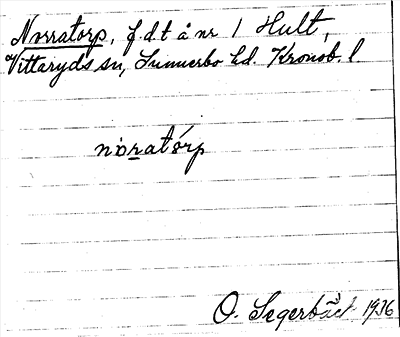 Norratorp, f.d.t å nr 1 Hult,
Vittaryds sn, Sunnerbo hd. Kronob. l
nȯratȯ́rp
O. Segerbäck 1936